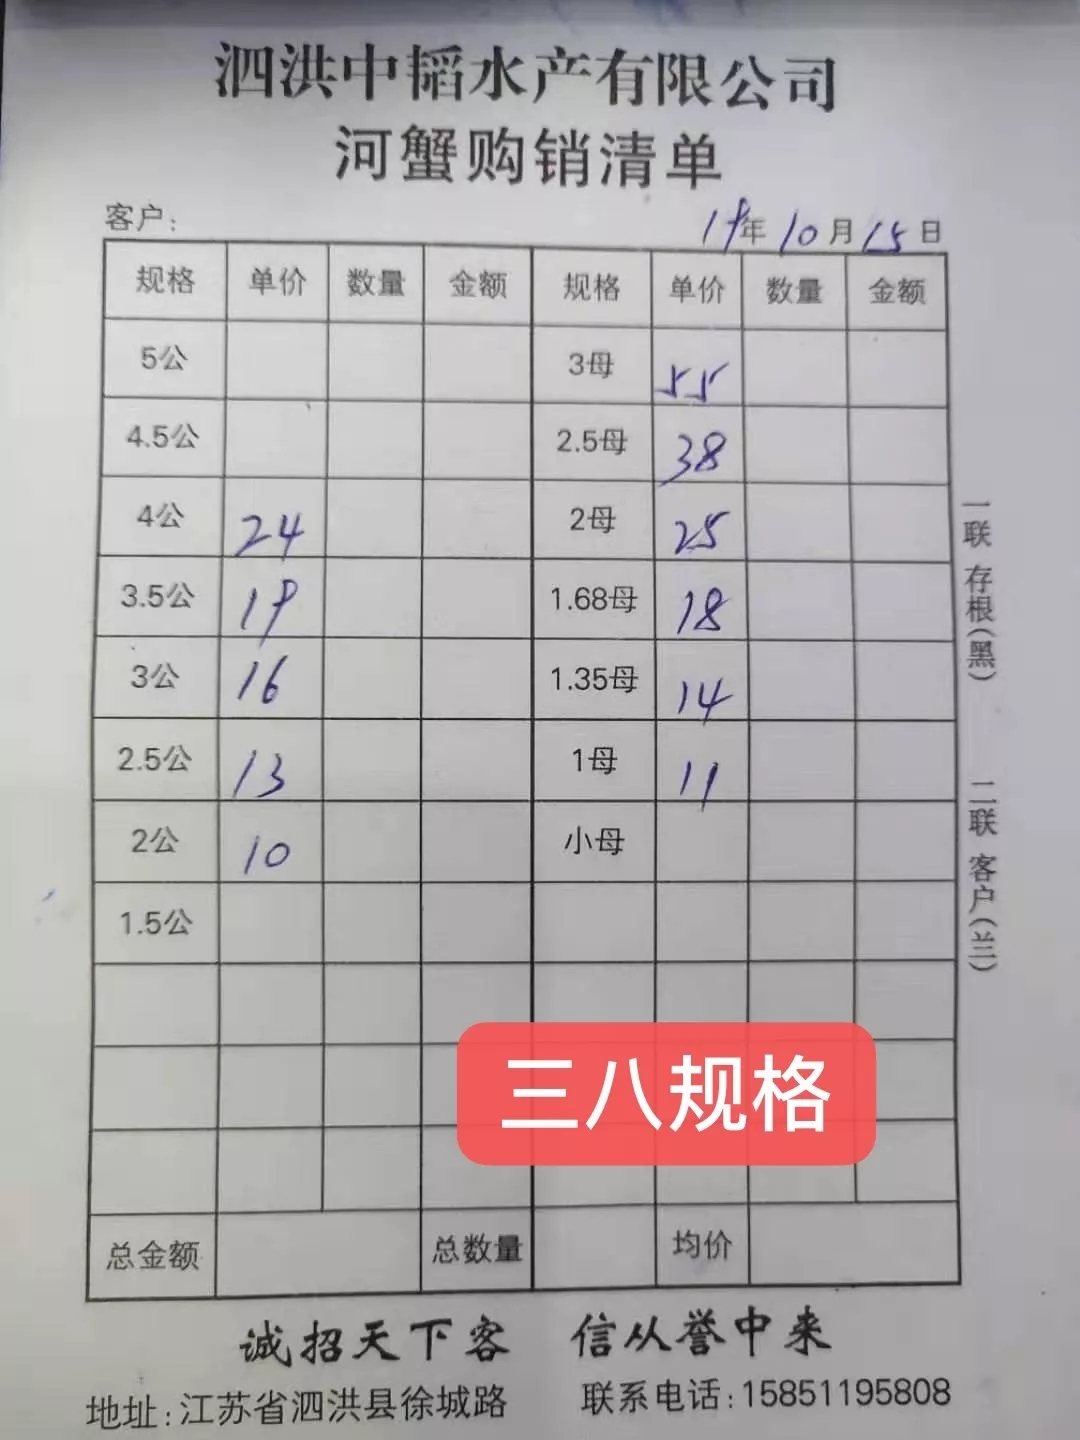 泗洪中韬水产有限公司
河蟹购销清单
客户: 19年10月15日
规格 单价 数量 金额 规格 单价 数量 金额
5公 3母 55
4.5公 2.5母 38
4公 24 2母 25
3.5公 19 1.68母 18
3公 16 1.35母 14
2.5公 13 1母 11
2公 10 小母
1.5公
三八规格
总金额 总数量 均价
一联 存根(黑) 二联 客户(兰)
诚招天下客 信从誉中来
地址:江苏省泗洪县徐城路 联系电话:15851195808